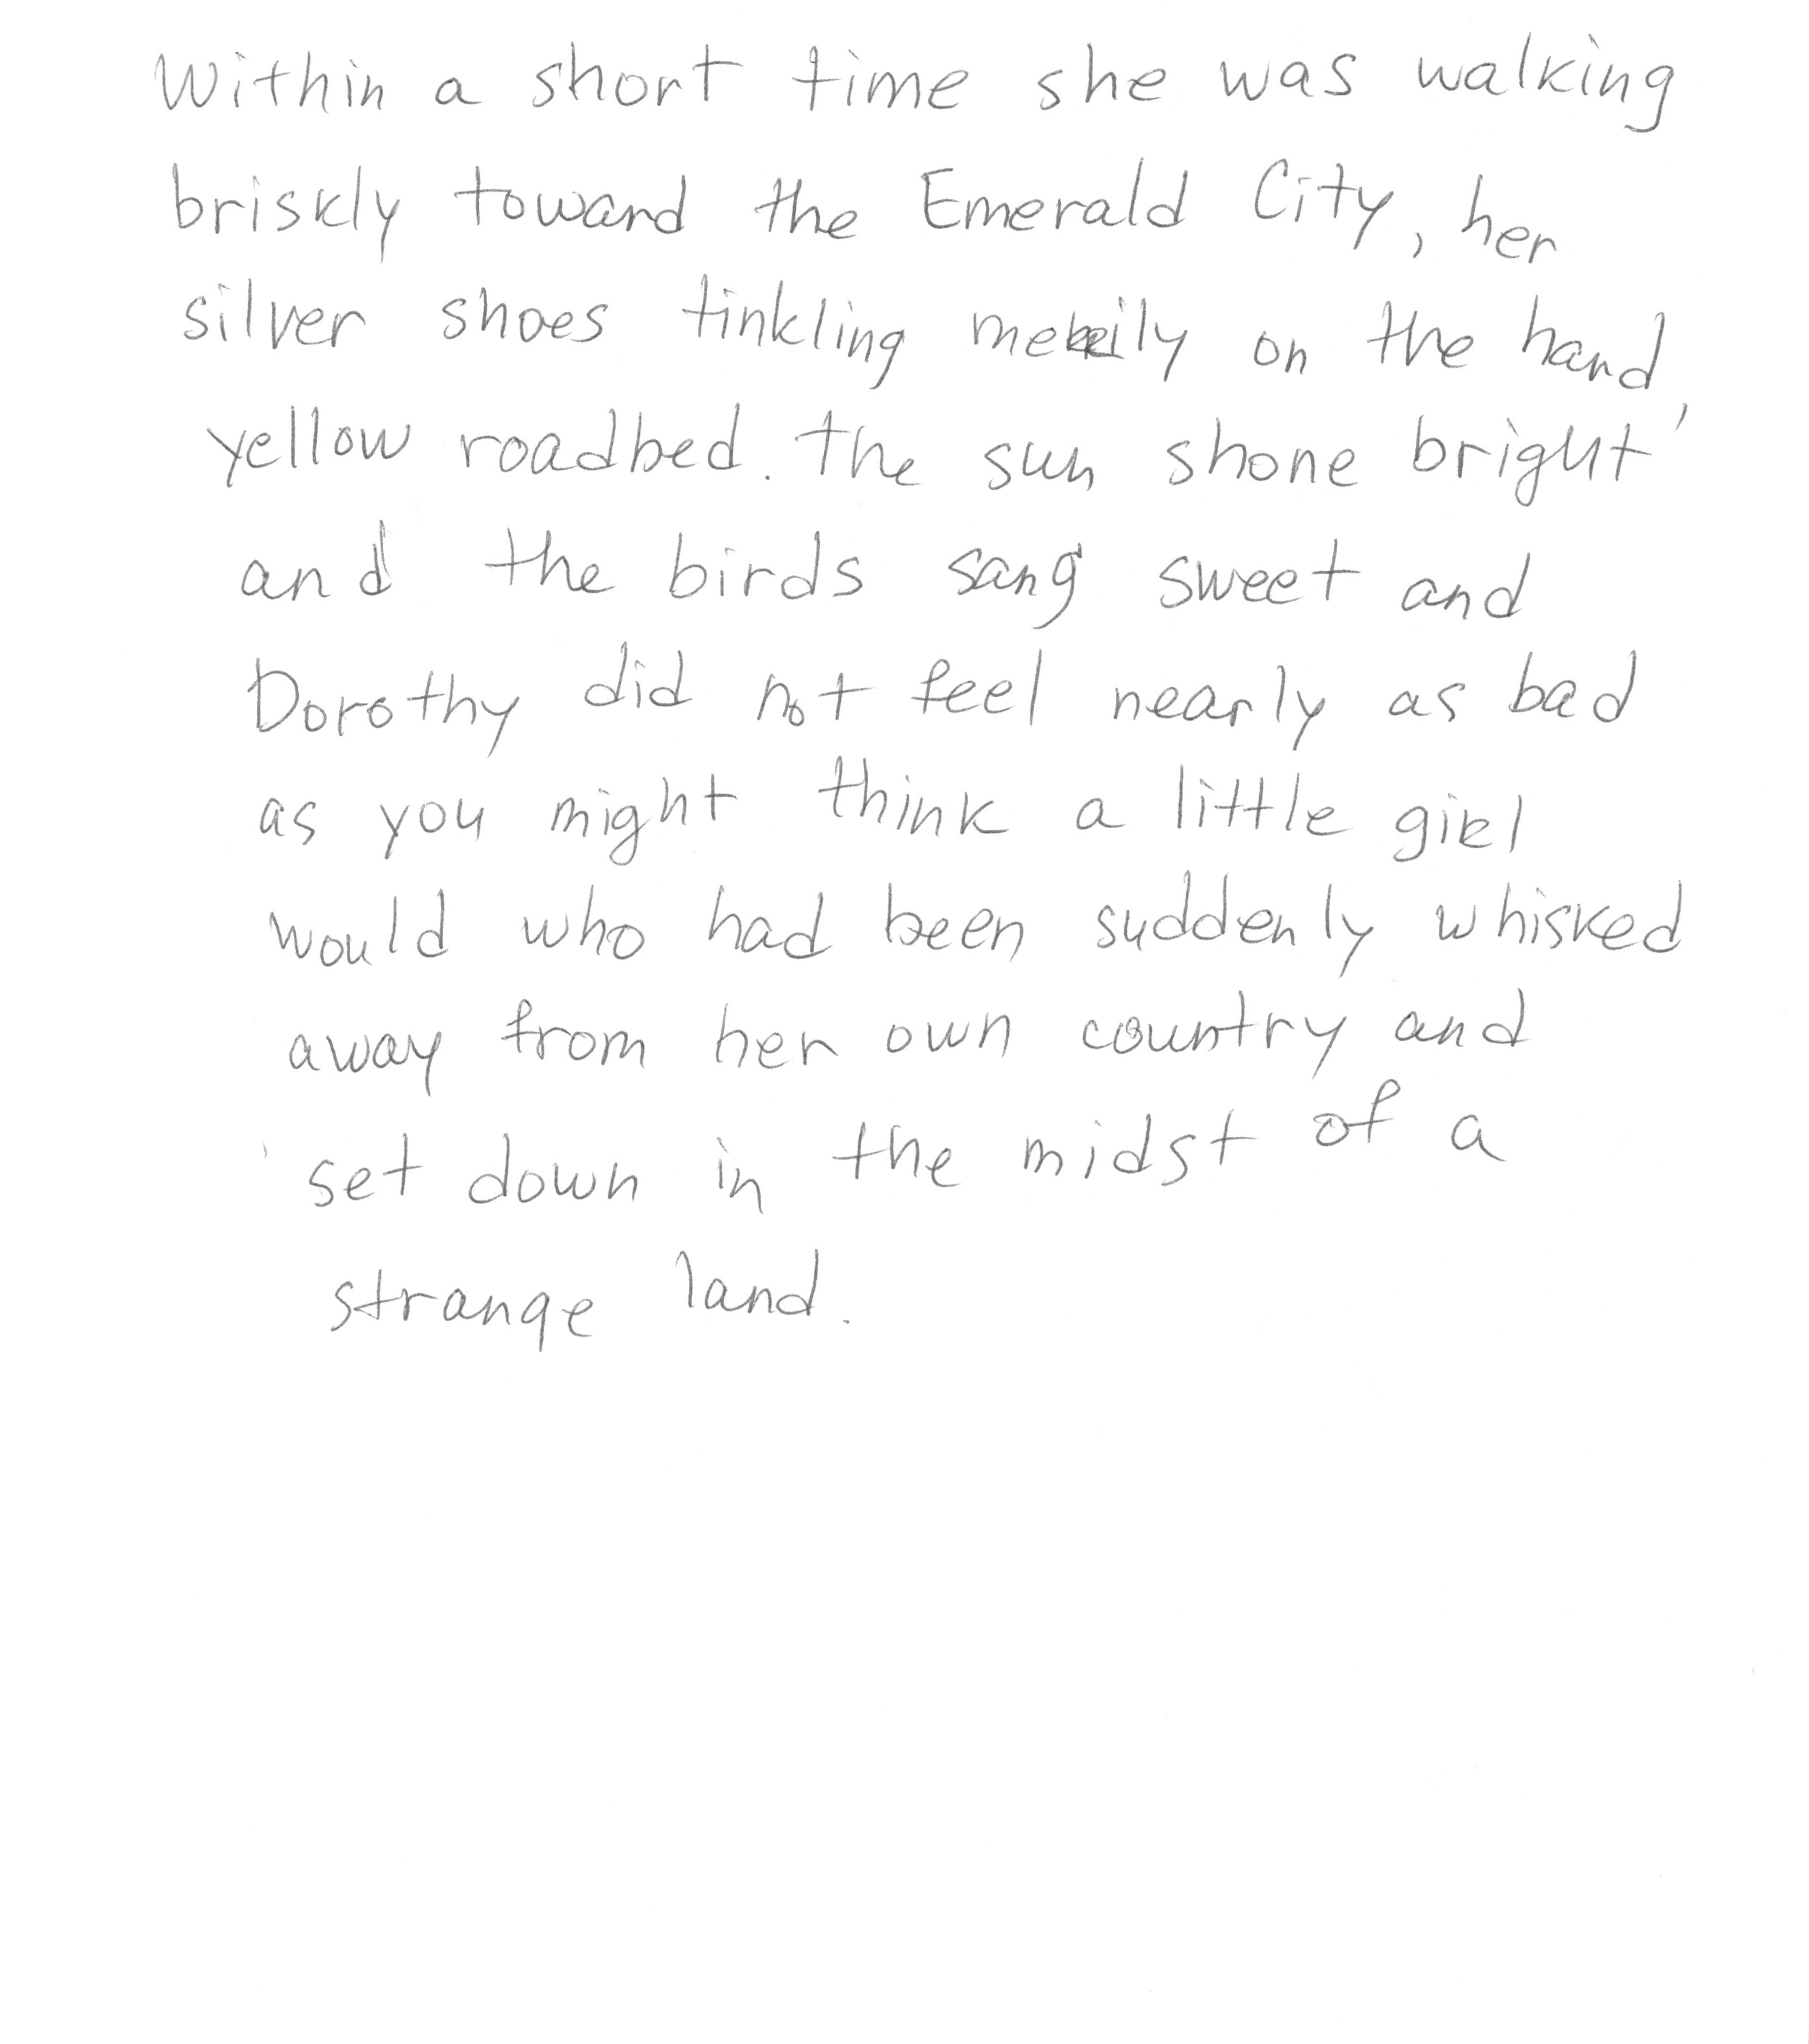 Within a short time she was walking
briskly toward the Emerald City, her
silver shoes tinkling merrily on the hard,
yellow roadbed. The sun shone bright
and the birds sang sweet and
Dorothy did not feel nearly as bad
as you might think a little girl
would who had been suddenly whisked
away from her own country and
set down in the midst of a
strange land.